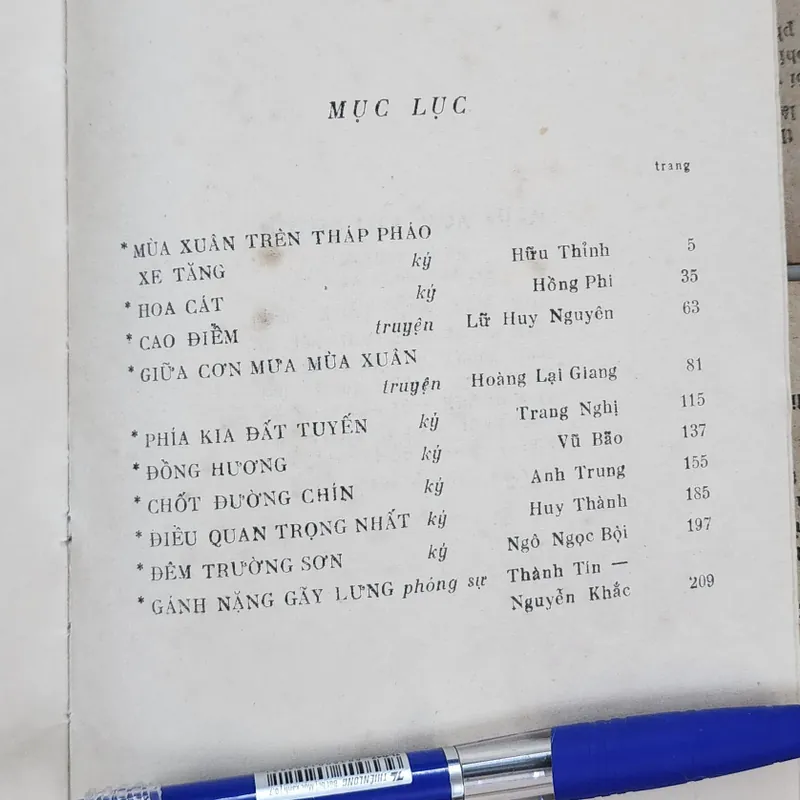 MỤC LỤC
trang
* MÙA XUÂN TRÊN THÁP PHÁO
XE TĂNG ký Hữu Thỉnh 5
* HOA CÁT ký Hồng Phi 35
* CAO ĐIỂM truyện Lữ Huy Nguyên 63
* GIỮA CƠN MƯA MÙA XUÂN
truyện Hoàng Lại Giang 81
* PHÍA KIA ĐẤT TUYẾN ký Trang Nghị 115
* ĐỒNG HƯƠNG ký Vũ Bão 137
* CHỐT ĐƯỜNG CHÍN ký Anh Trung 155
* ĐIỀU QUAN TRỌNG NHẤT ký Huy Thành 185
* ĐÊM TRƯỜNG SƠN ký Ngô Ngọc Bội 197
* GÁNH NẶNG GÃY LƯNG phóng sự Thành Tín —
Nguyễn Khắc 209
TL THIENLONG